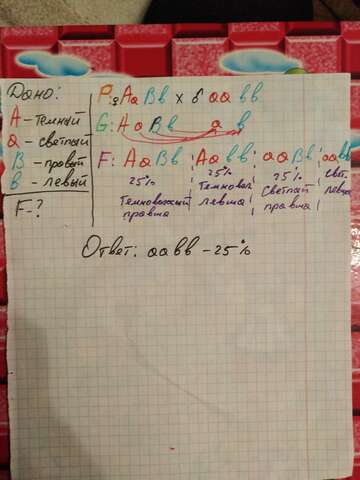 Дано:
А - темный
а - светлый
В - правый
в - левый
F - ?
P: ♀ Аа Вв × ♂ аа вв
G: А а В в а в
F: Аа Вв Аа вв аа Вв аавв
25% 25% 25%
Темноволосый правша
Темновол. левша
Светлый правша
Свет. левша
Ответ: аавв - 25%